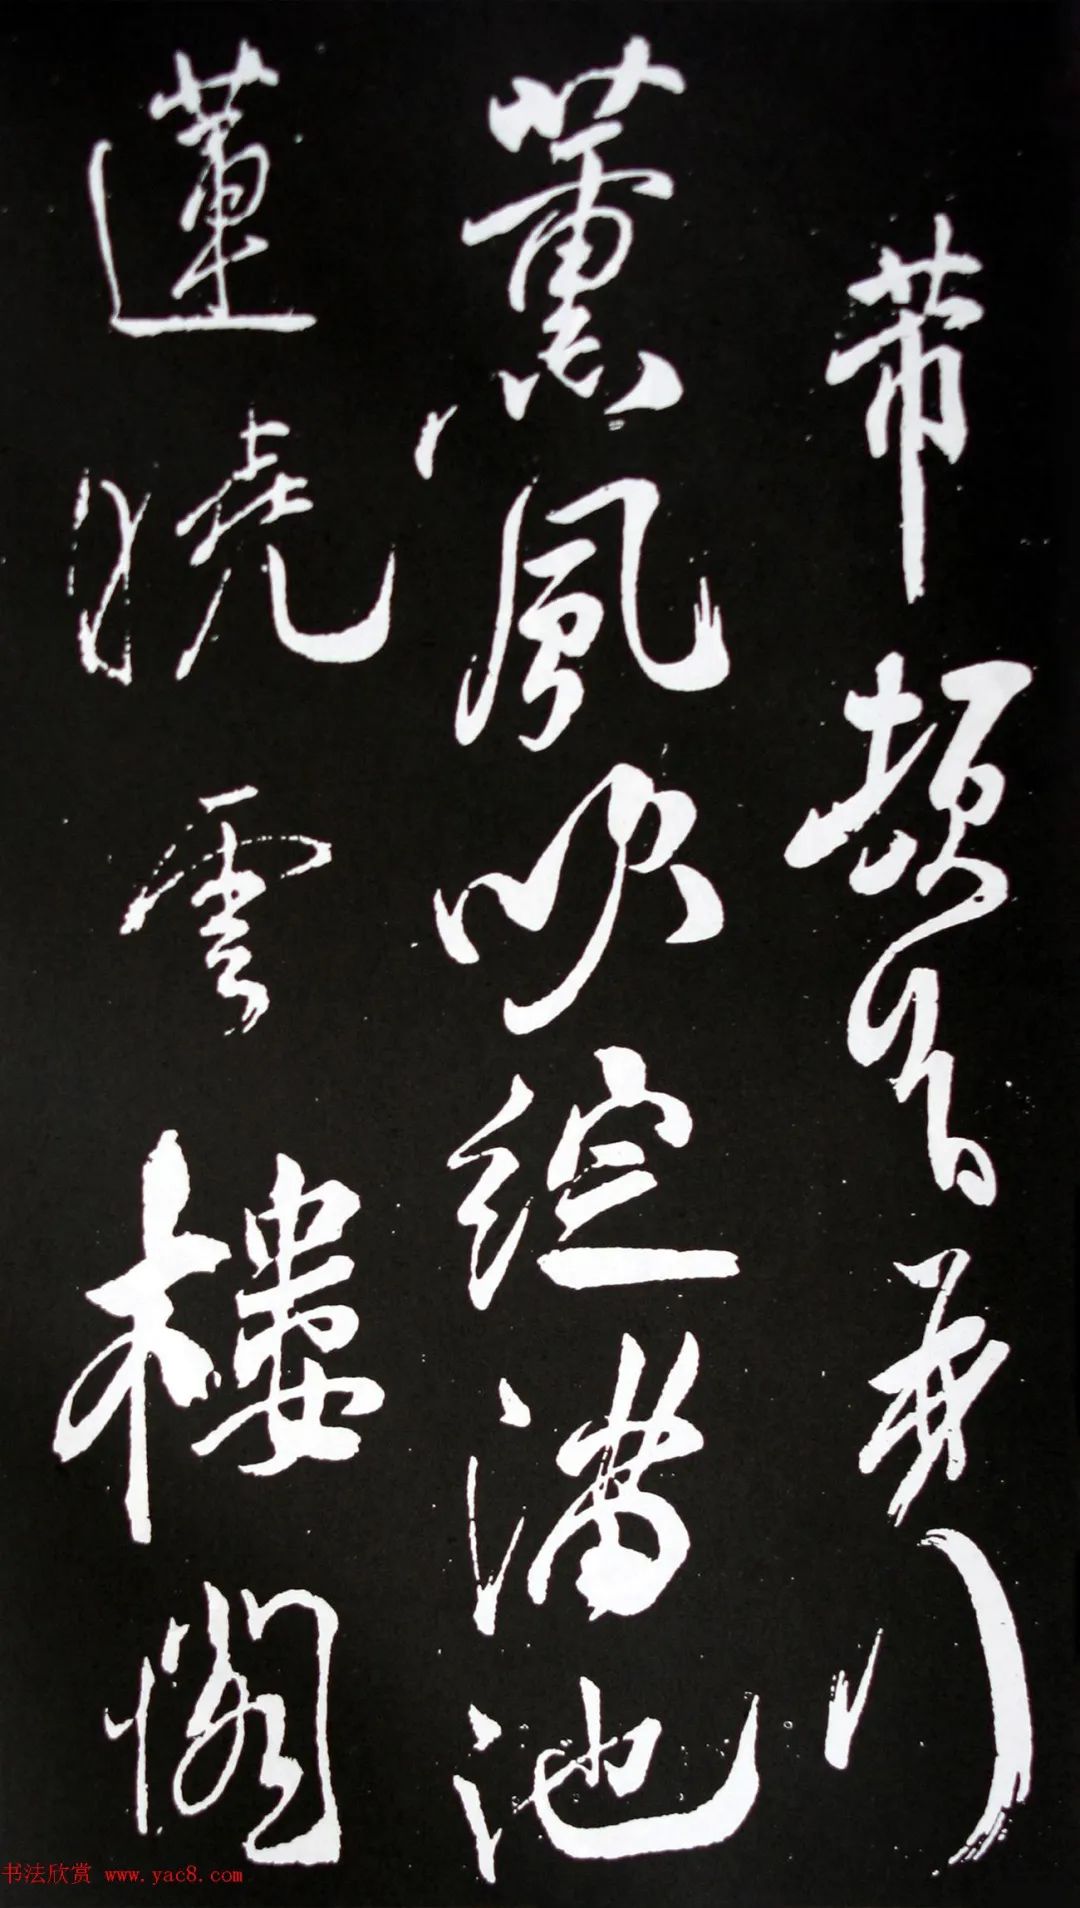 芾頓首再拜
薰風吹綻滿池
蓮繞雲樓閣
书法欣赏 www.yac8.com